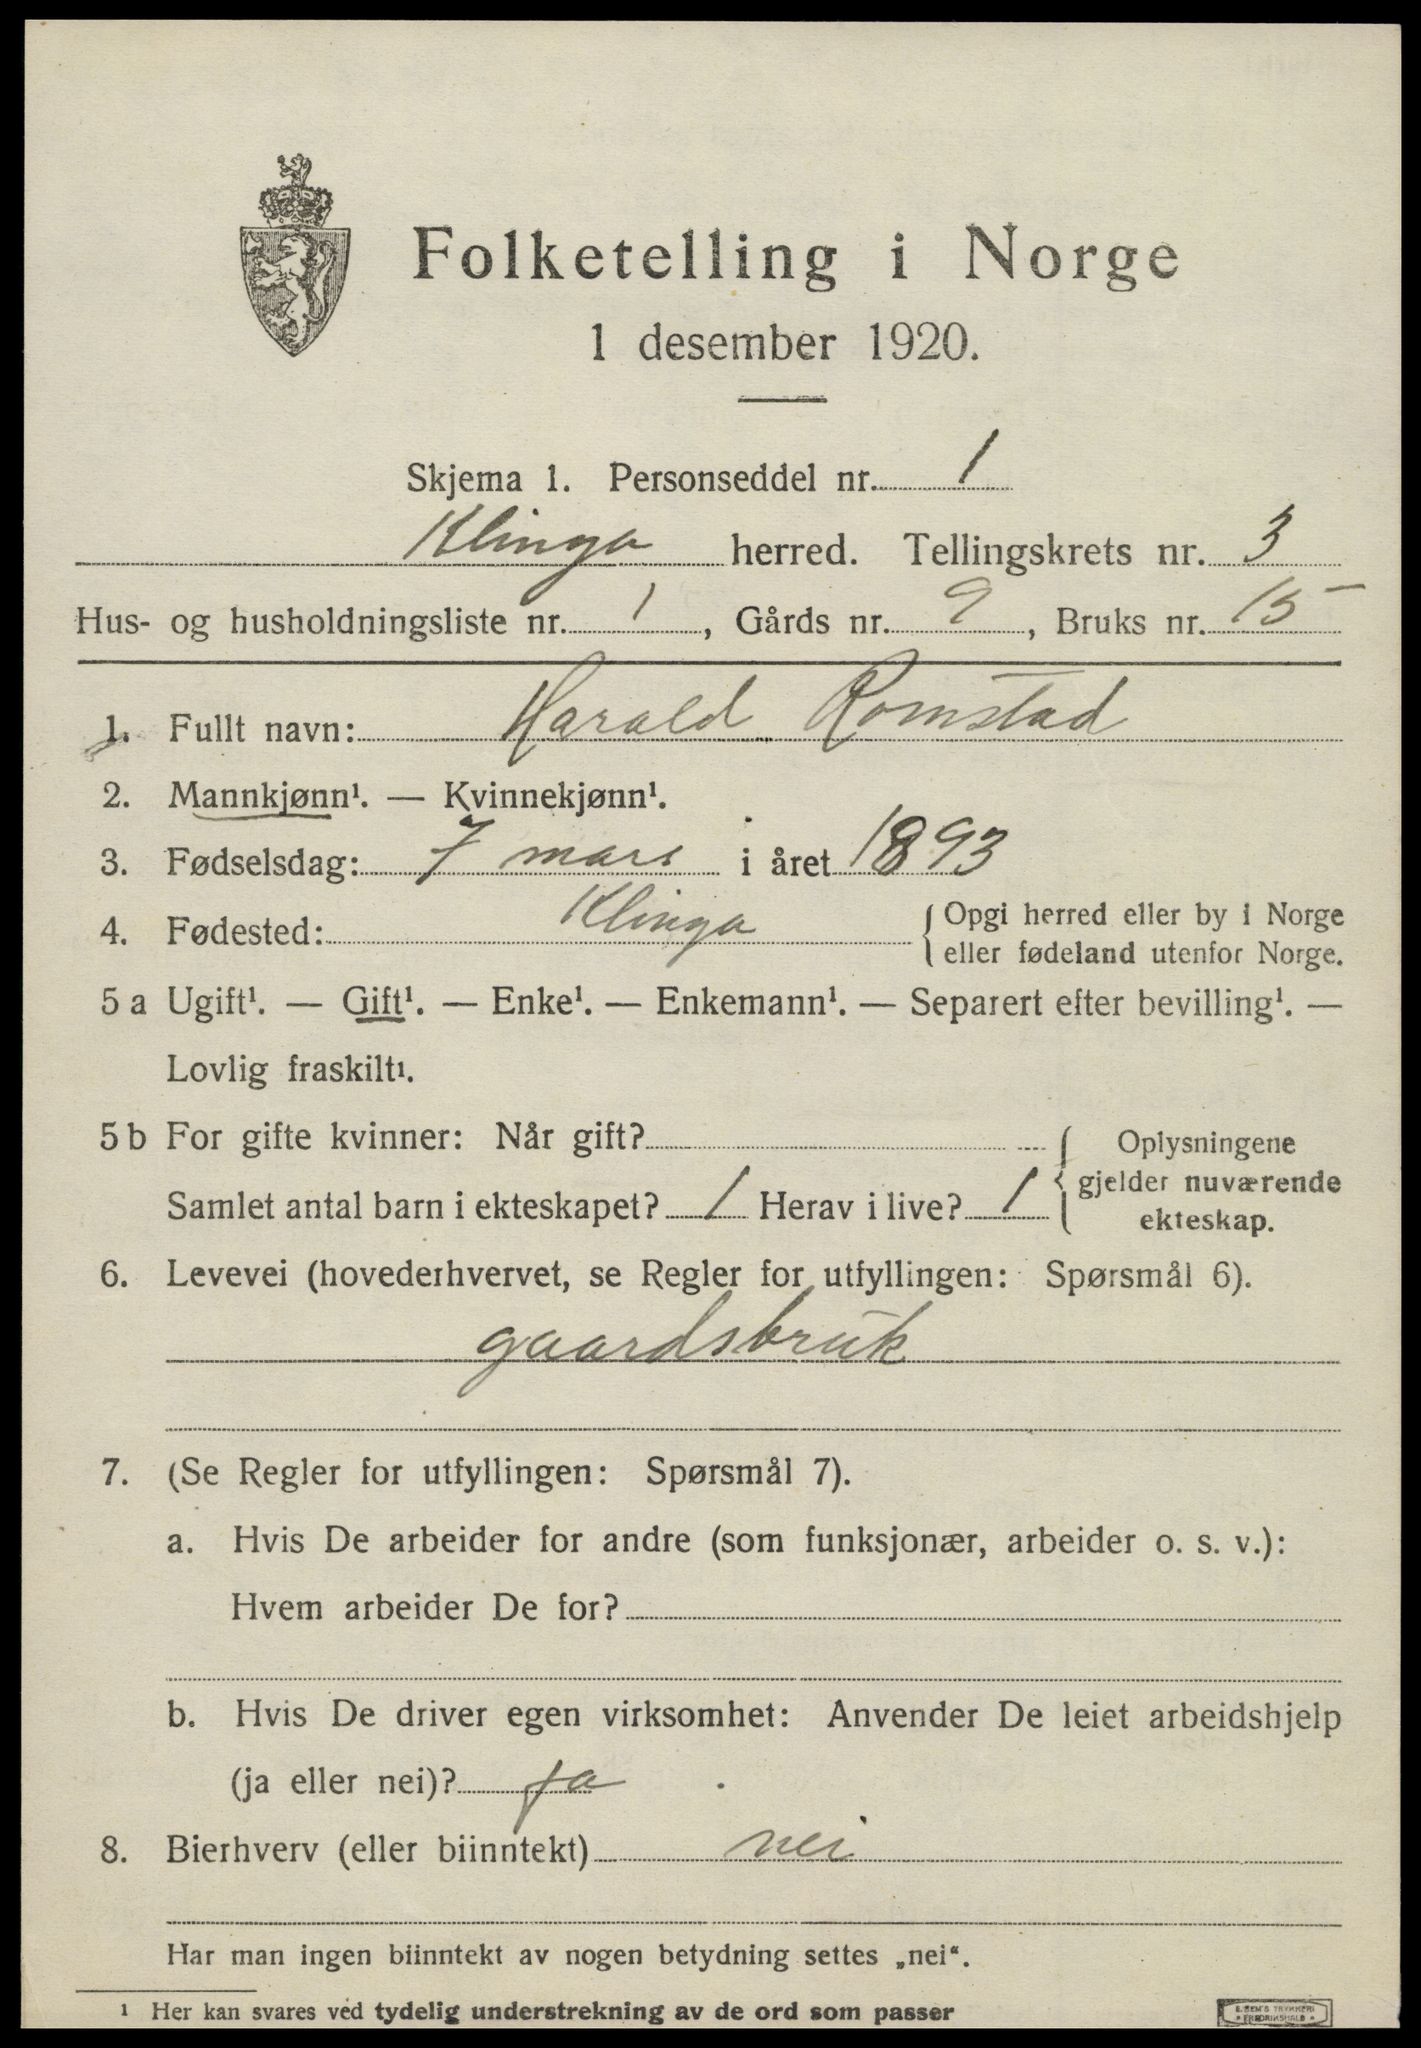 Folketelling i Norge
1 desember 1920.
Skjema 1. Personseddel nr. 1
Klinga herred. Tellingskrets nr. 3
Hus- og husholdningsliste nr. 1, Gårds nr. 9, Bruks nr. 15
1. Fullt navn: Harald Romstad
2. Mannkjønn¹. — Kvinnekjønn¹.
3. Fødselsdag: 7 mars i året 1893
4. Fødested: Klinga { Opgi herred eller by i Norge
eller fødeland utenfor Norge.
5 a Ugift¹. — Gift¹. — Enke¹. — Enkemann¹. — Separert efter bevilling¹. —
Lovlig fraskilt¹.
5 b For gifte kvinner: Når gift? { Oplysningene
gjelder nuværende
Samlet antal barn i ekteskapet? 1 Herav i live? 1
ekteskap.
6. Levevei (hovederhvervet, se Regler for utfyllingen: Spørsmål 6).
gaardsbruk
7. (Se Regler for utfyllingen: Spørsmål 7).
a. Hvis De arbeider for andre (som funksjonær, arbeider o. s. v.):
Hvem arbeider De for?
b. Hvis De driver egen virksomhet: Anvender De leiet arbeidshjelp
(ja eller nei)? ja
8. Bierhverv (eller biinntekt) nei
Har man ingen biinntekt av nogen betydning settes „nei“.
¹ Her kan svares ved tydelig understrekning av de ord som passer
E. SEM'S TRYKKERI
FREDRIKSHALD